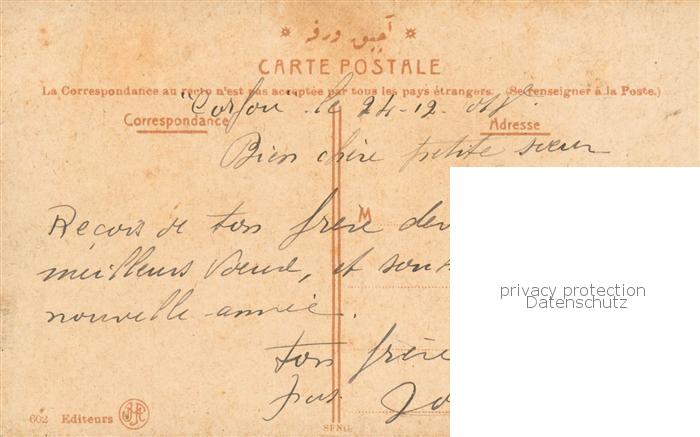 آچيق ورقه
CARTE POSTALE
La Correspondance au recto n'est pas acceptée par tous les pays étrangers. (Se renseigner à la Poste.)
"Corfou" le 24-12
Correspondance
Adresse
Bien chère petite sœur
M
Reçois de ton frère
meilleurs vœux, et
nouvelle année.
ton frère
602 Editeurs
privacy protection
Datenschutz